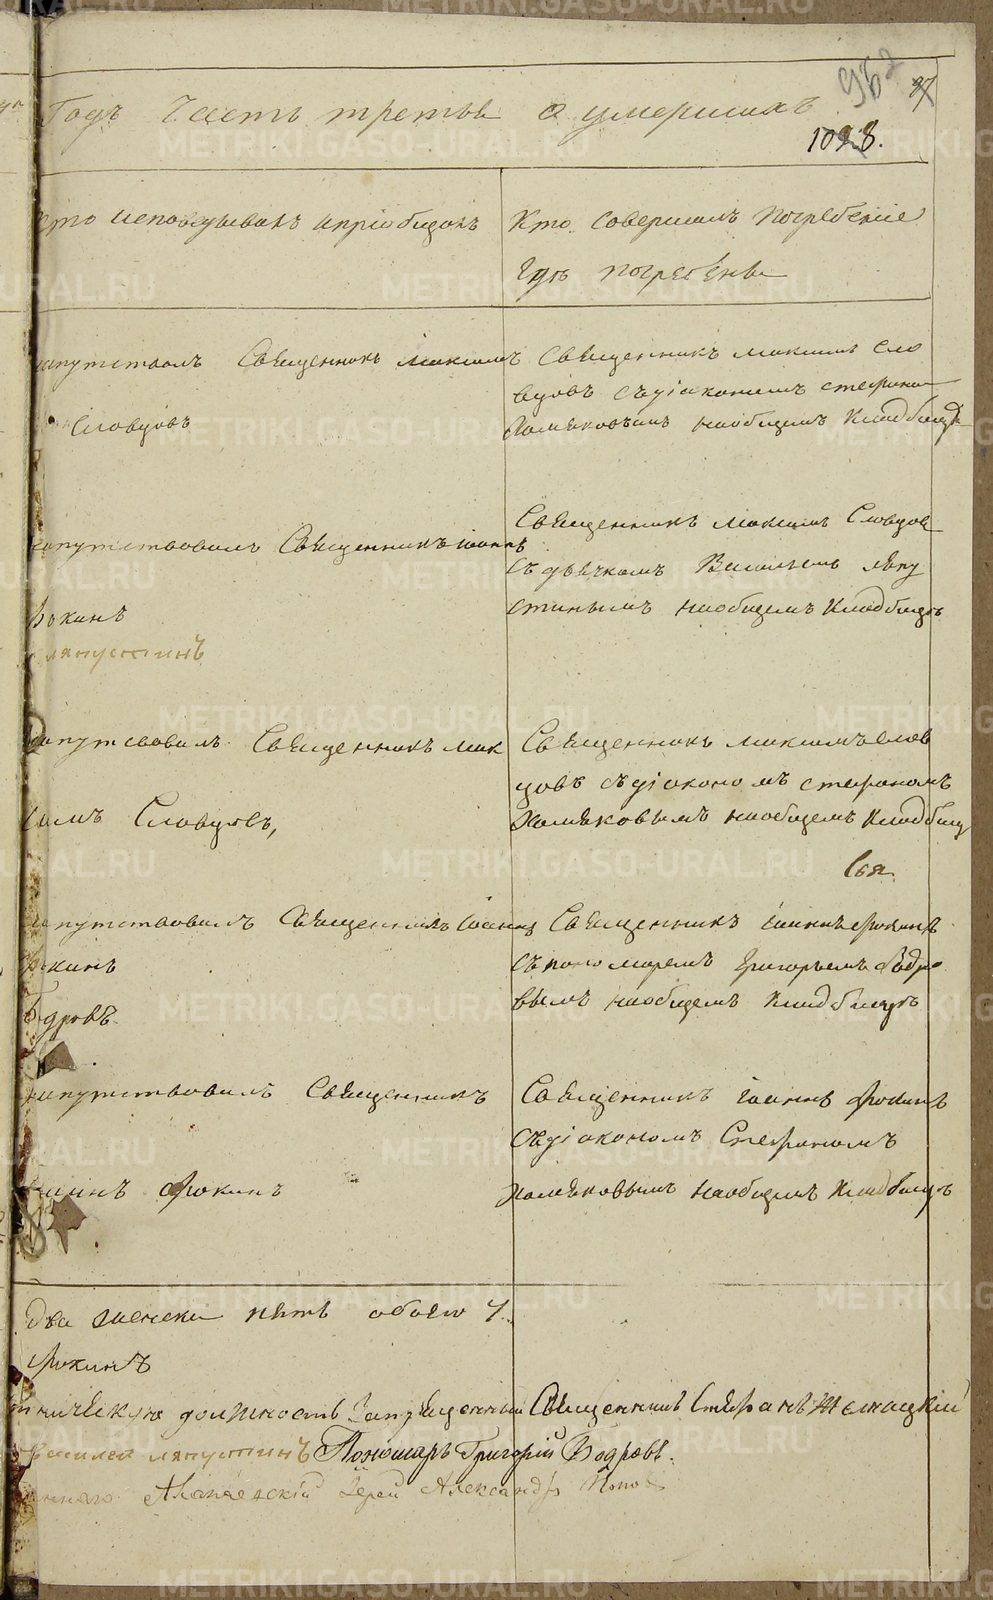 Годъ Часть третья о умершихъ
1028.
кто исповѣдывалъ и пріобщалъ
Кто совершалъ погребеніе
Гдѣ погребены
напутствовалъ Священникъ Максимъ
Словцовъ
Священникъ Максимъ Сло
вцовъ съ діакономъ стефаном
Хомяковымъ на общемъ Кладбищѣ
напутствовалъ Священникъ Іоаннъ
Фокинъ
Ляпустинъ
Священникъ Максимъ Словцов
съ дьячкомъ Васильемъ Ляпу
стинымъ на общемъ Кладбищѣ
напутсвовалъ Священникъ Мак
симъ Словцовъ,
Священникъ Максимъ Слов
цовъ съ діакономъ стефаномъ
Хомяковымъ на общемъ Кладбищ
напутствовалъ Священникъ Іоаннъ
Фокинъ
Бодровъ
Священникъ Іоаннъ Фокинъ
съ пономаремъ Григорьемъ Бодро
вымъ на общемъ Кладбищѣ
напутствовалъ Священникъ
Іоаннъ Фокинъ
Священникъ Іоаннъ Фокинъ
съ діакономъ Стефаномъ
Хомяковымъ на общемъ Кладбищѣ
два женска пять обоего 7
Фокинъ
должность Запрещенный Священникъ Стефанъ
Василей Ляпустинъ Пономарь Григорій Бодровъ.
Алапаевскій Іерей Александръ Попов
METRIKI.GASO-URAL.RU